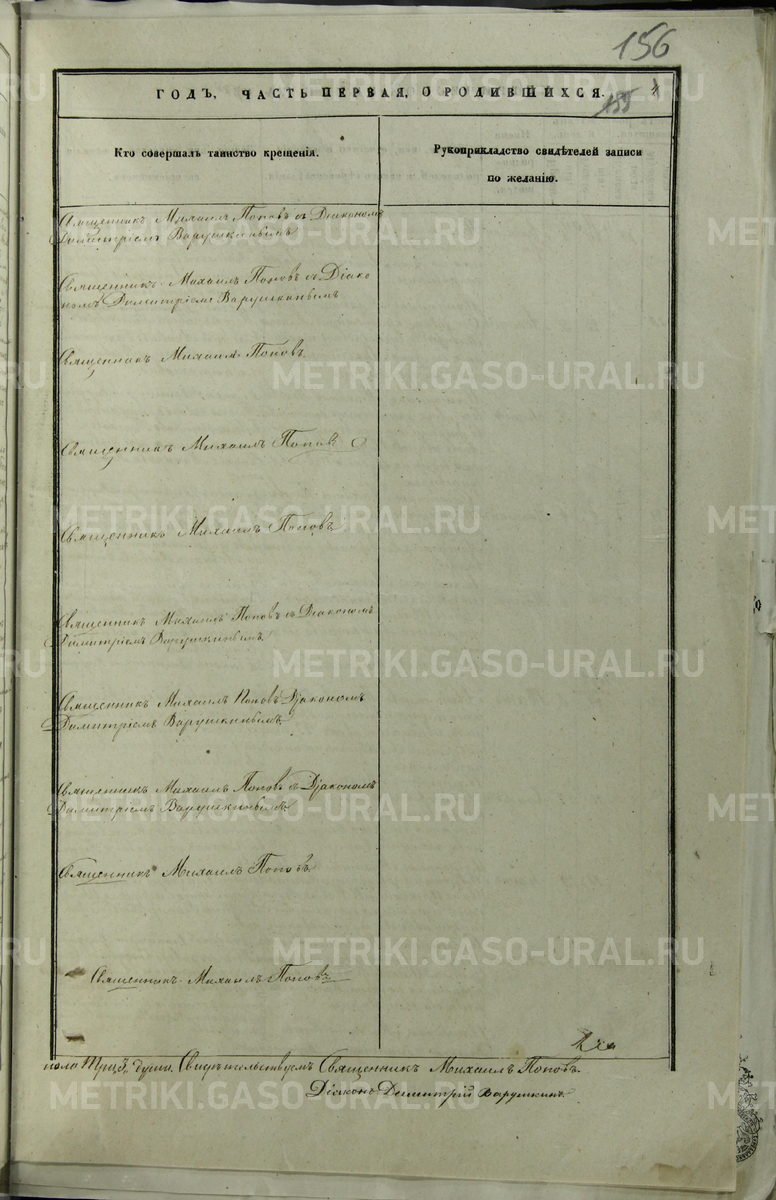 156
ГОДЪ, ЧАСТЬ ПЕРВАЯ, О РОДИВШИХСЯ.
155
Кто совершалъ таинство крещенія.
Рукоприкладство свидѣтелей записи
по желанію.
Священникъ Михаилъ Поповъ съ Діакономъ
Димитріемъ Варушкинымъ
Священникъ Михаилъ Поповъ съ Діако
номъ Димитріемъ Варушкинымъ
Священникъ Михаилъ Поповъ.
Священникъ Михаилъ Поповъ
Священникъ Михаилъ Поповъ
Священникъ Михаилъ Поповъ съ Діакономъ
Димитріемъ Варушкинымъ.
Священникъ Михаилъ Поповъ Діакономъ
Димитріемъ Варушкинымъ.
Священникъ Михаилъ Поповъ съ Діакономъ
Димитріемъ Варушкинымъ.
Священникъ Михаилъ Поповъ.
Священникъ Михаилъ Поповъ
пола душъ Свидѣтельствуемъ Священникъ Михаилъ Поповъ.
Діаконъ Димитрій Варушкинъ.
METRIKI.GASO-URAL.RU